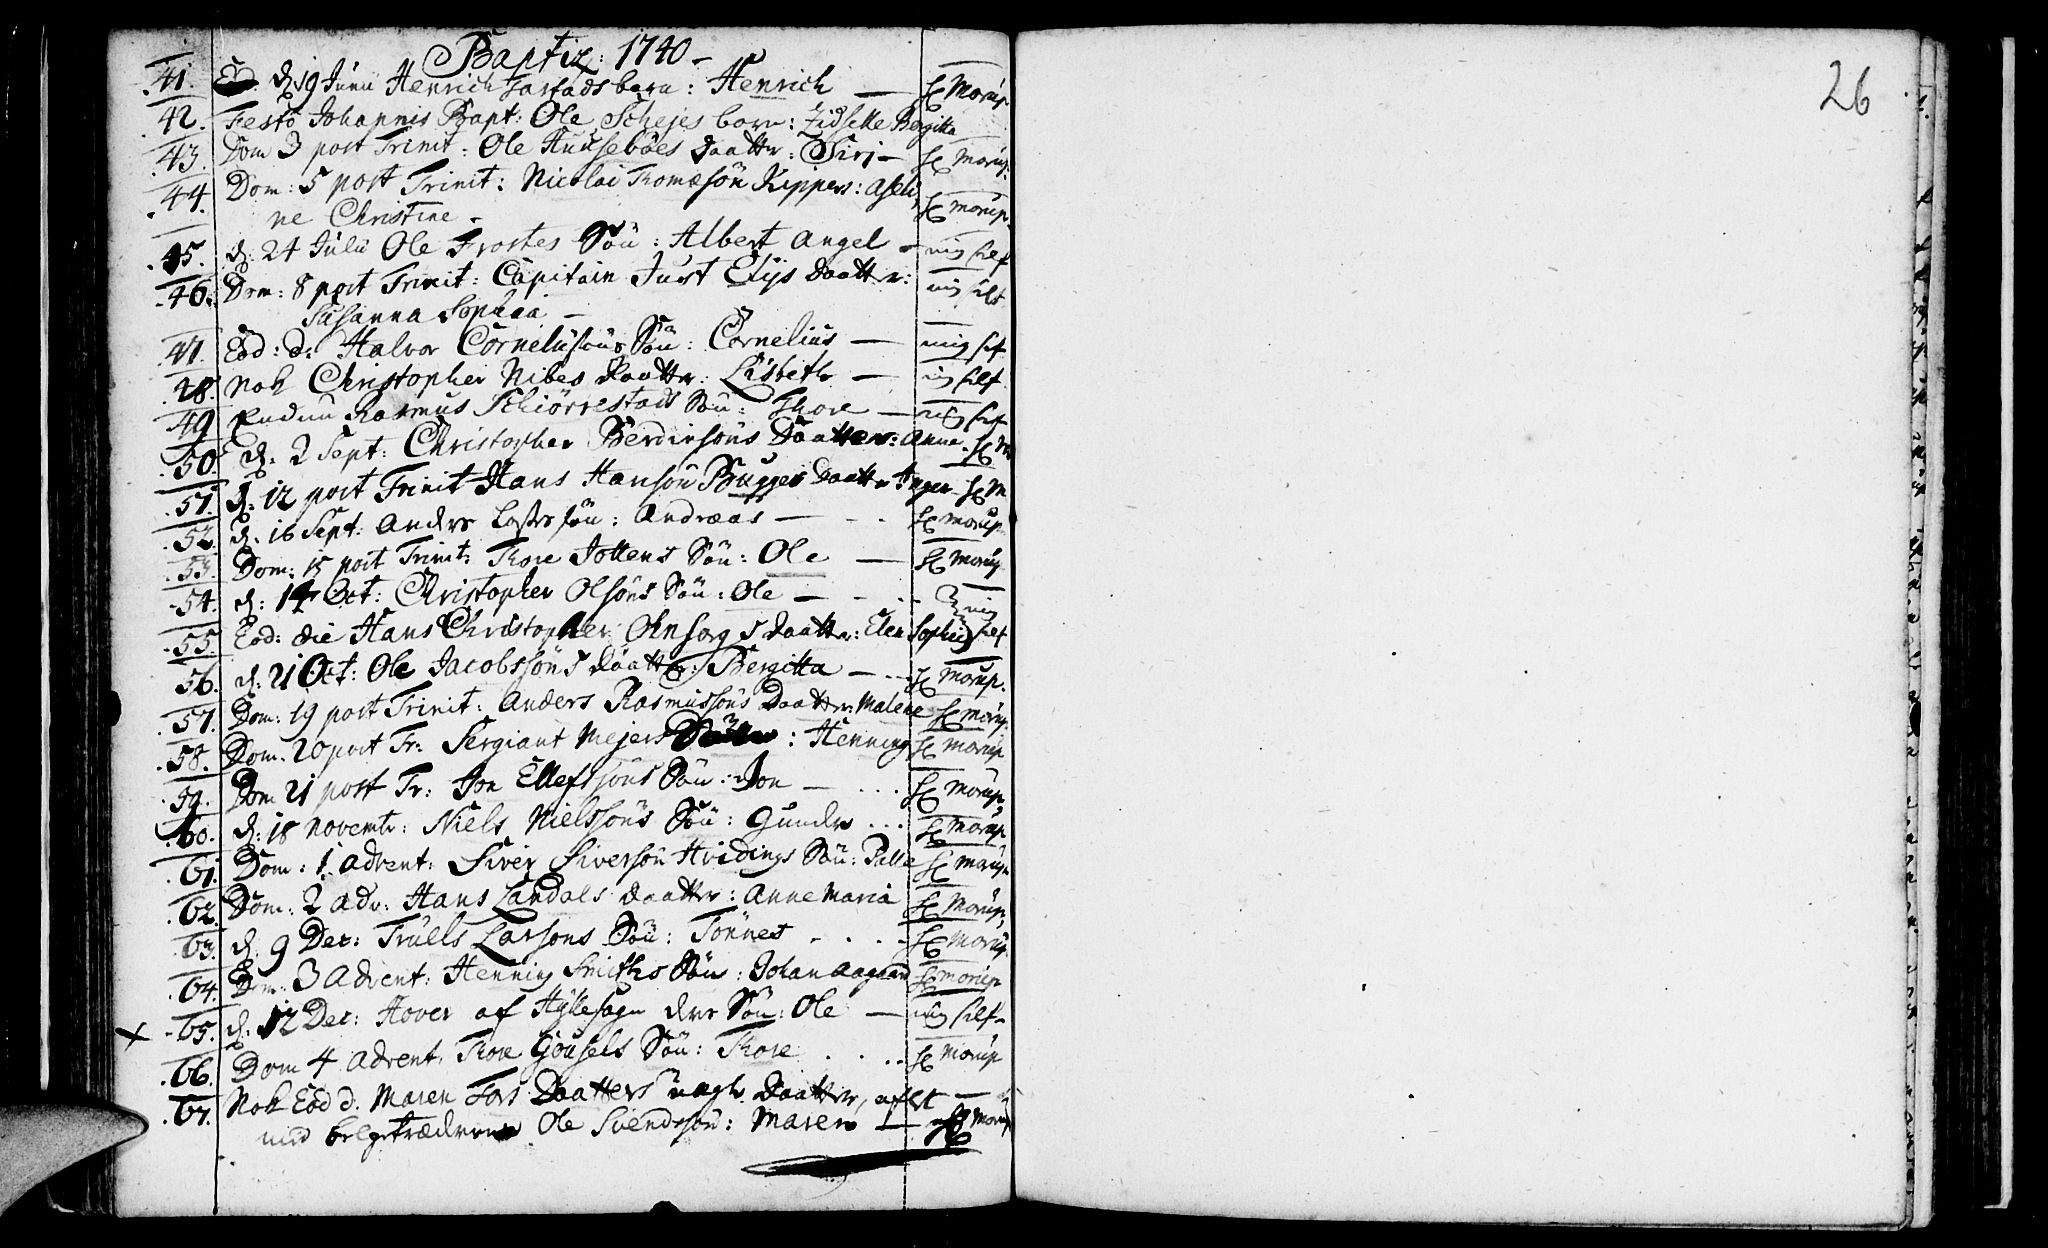 Baptiz: 1740 -
41. d: 19 Junii Henrich Fastads barn: Henrich — Hr Morup
42. Festo Johannis Bapt: Ole Schejes barn: Zidselle Bergitta
43. Dom 3 post Trinit: Ole Huusebøes Daatter: Siri - Hr Morup.
44. Dom: 5 post Trinit: Nicolai Thomæsøn Kippers: Aseli
ne Christine - Hr Morup.
45. d: 24 Julii Ole Frostes Søn: Albert Angel - mig self
46. Dom: 8 post Trinit: Capitain Just Elys Daatter: mig self
Susanna Sophia -
47. Eod: d: Halvor Corneliisøns Søn: Cornelius — mig self
48. Nok Christopher Nibes Daatter: Lisbeth — mig self
49. Endnu Rasmus Schiørrestads Søn: Thore — mig self
50. d: 2 Sept: Christopher Berdinsøns Daatter: Anna. Hr M
51. d: 12 post Trinit Hans Hansøn Brugges Daatter Inger Hr M
52. d: 16 Sept: Andrs søn: Andræas — - . Hr Morup
53. Dom: 15 post Trinit: Thore Jottens Søn: Ole — Hr Morup
54. d: 14 Oct: Christopher Olsøns Søn: Ole — - . . mig
55. Eod: die Hans Christopher Ohnsorgs Daatter: Elen Sophia self
56. d: 21 Oct: Ole Jacobssøns Daatter: Bergitta — . . . Hr Morup.
57. Dom: 19 post Trinit: Anders Rasmussøns Daatter: Malene Hr Morup.
58. Dom. 20 post Tr: Sergiant Mejers Søn: Henning Hr Morup
59. Dom 21 post Tr: Jon Ellefssøns Søn: Jon — . . . Hr Morup
60. d: 18 Novembr: Niels Nielssøns Søn: Gunder . . . Hr Morup
61. Dom: 1 Advent: Siver Siversøn Hvidings Søn: Pelle Hr Morup
62. Dom: 2 Adv: Hans Landals Daatter: Anne Maria Hr Morup
63. d: 9 Dec: Truels Larsøns Søn: Tønnes - . . . Hr Morup
64. Dom: 3 Advent: Henning Smiths Søn: Johan Aagaard Hr Morup
x 65. d: 12 Dec: Hover af Hyllesogn deres Søn: Ole — mig self -
66. Dom 4 Advent: Thore Gousels Søn: Thore . . . . Hr Morup
67. Nok Eod d. Maren Fors Daatters uægte Daatter, aflet —
ved Ole Svendsøn: Maren — Hr Morup
26